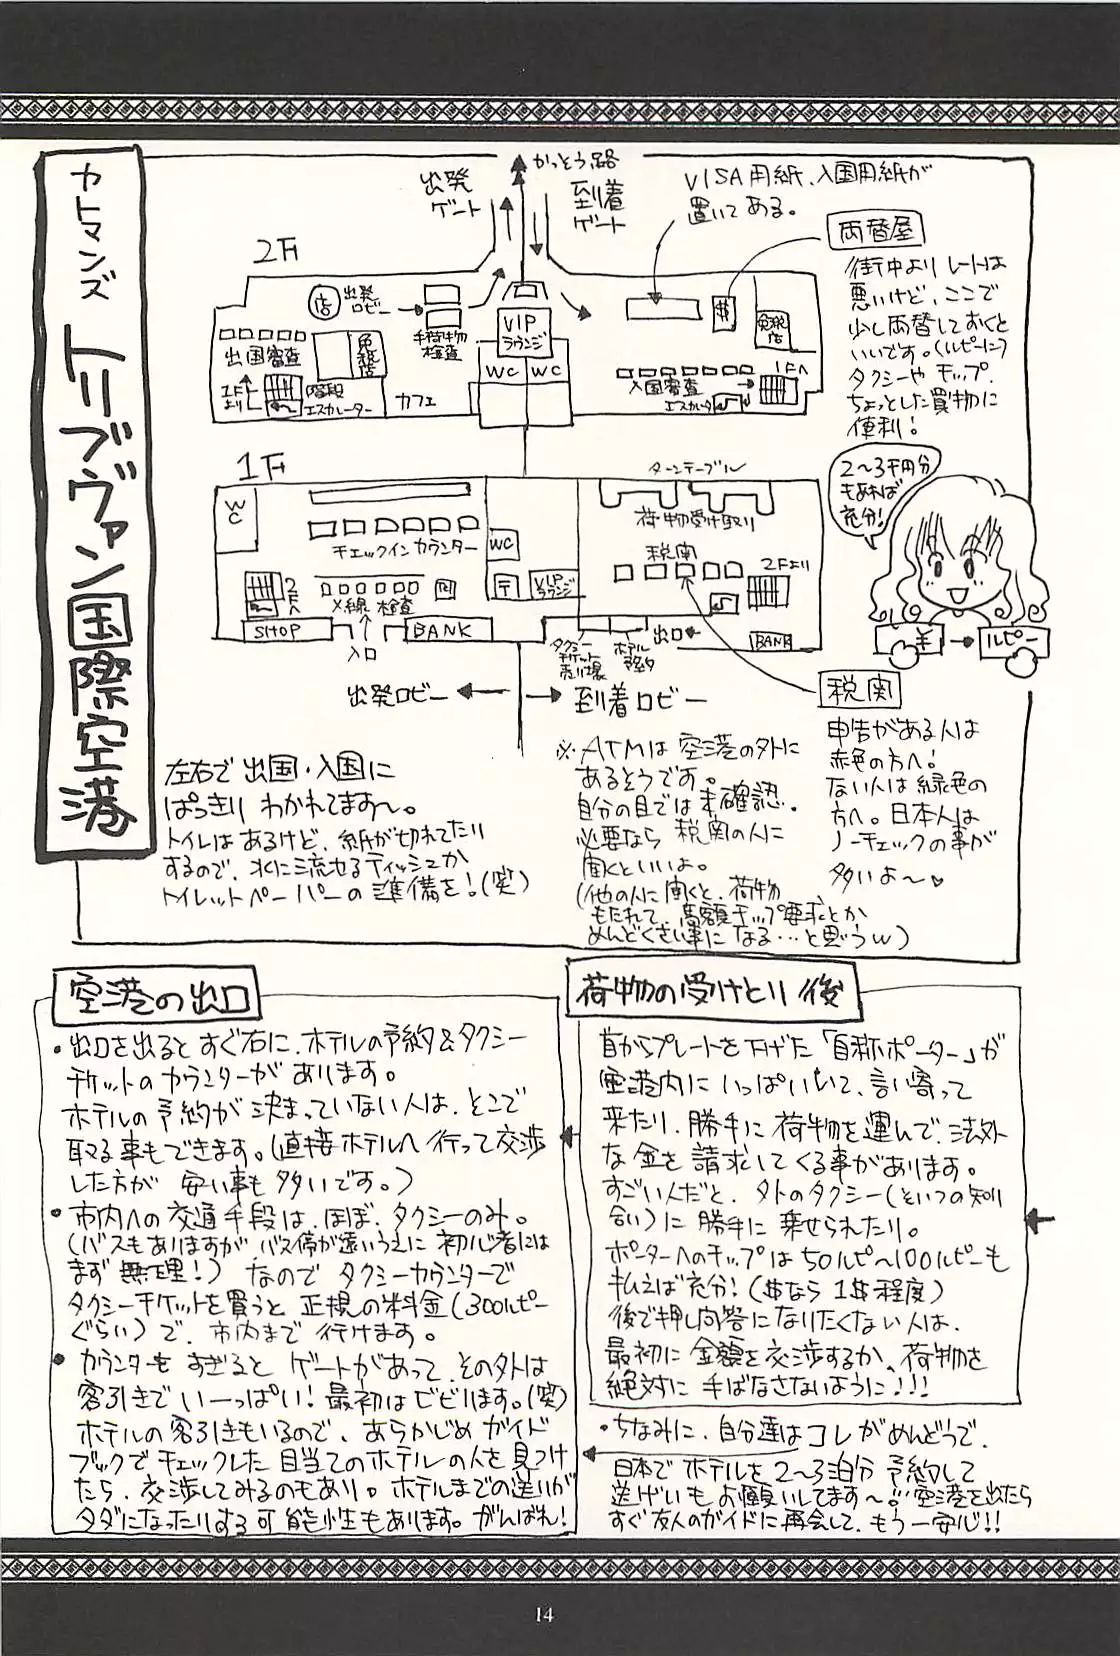 カトマンズ
トリブヴァン国際空港
かっとう路
出発
ゲート
到着
ゲート
VISA用紙、入国用紙が
置いてある。
両替屋
街中よりレートは
悪いけど、ここで
少し両替しておくと
いいです。(ルピーに)
タクシーやチップ、
ちょっとした買物に
便利!
2〜3千円分
もあれば
充分!
¥
ルピー
2F
店
出発
ロビー
手荷物
検査
VIP
ラウンジ
WC
WC
$
免税店
出国審査
免税店
1F
より
階段
エスカレーター
カフェ
入国審査
エスカレータ
1Fへ
1F
WC
チェックインカウンター
2Fへ
X線検査
SHOP
入口
BANK
WC
〒
VIP
ラウンジ
ターンテーブル
荷物受け取り
税関
2Fより
出口
BANK
タクシー
チケット
売り場
ホテル
予約
出発ロビー
到着ロビー
税関
申告がある人は
赤色の方へ!
ない人は緑色の
方へ。日本人は
ノーチェックの事が
多いよ〜♥
左右で出国・入国に
ぱっきりわかれてます〜。
トイレはあるけど、紙が切れてたり
するので、水に流せるティッシュか
トイレットペーパーの準備を!(笑)
※ATMは空港の外に
あるそうです。
自分の目では未確認。
必要なら税関の人に
聞くといいよ。
(他の人に聞くと、荷物
もたれて、高額チップ要求とか
めんどくさい事になる…と思うw)
空港の出口
・出口を出るとすぐ右に、ホテルの予約&タクシー
チケットのカウンターがあります。
ホテルの予約が決まっていない人は、そこで
取る事もできます。(直接ホテルへ行って交渉
した方が安い事も多いです。)
・市内への交通手段は、ほぼ、タクシーのみ。
(バスもありますが、バス停が遠いうえに初心者には
まず無理!)なのでタクシーカウンターで
タクシーチケットを買うと正規の料金(300ルピー
ぐらい)で、市内まで行けます。
・カウンターもすぎるとゲートがあって、その外は
客引きでい一っぱい!最初はビビります。(笑)
ホテルの客引きもいるので、あらかじめガイド
ブックでチェックした目当てのホテルの人を見つけ
たら、交渉してみるのもあり。ホテルまでの送りが
タダになったりする可能性もあります。がんばれ!
荷物の受けとり後
首からプレートを下げた「自称ポーター」が
空港内にいっぱいいて、言い寄って
来たり、勝手に荷物を運んで、法外
な金を請求してくる事があります。
すごい人だと、外のタクシー(そいつの知り
合い)に勝手に乗せられたり。
ポーターへのチップは50ルピー〜100ルピーも
払えば充分!($なら1$程度)
後で押し問答になりたくない人は、
最初に金額を交渉するか、荷物を
絶対に手ばなさないように!!!
・ちなみに、自分達はコレがめんどうで、
日本でホテルを2〜3泊分予約して
送げいもお願いしてます〜!!空港を出たら
すぐ友人のガイドに再会して、もう一安心!!
14